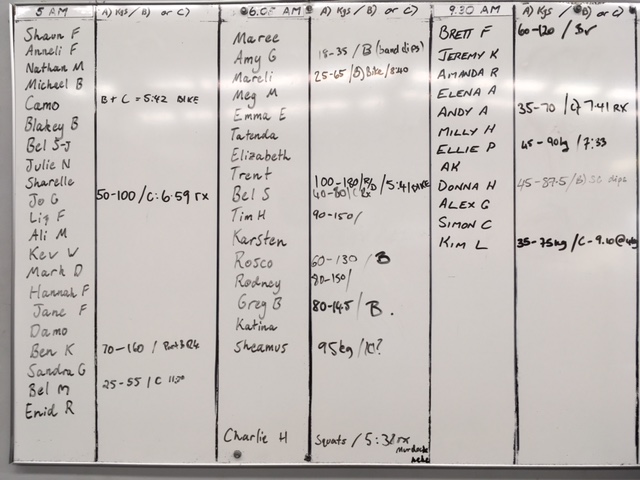 5 AM
A) Kgs / B) or C)
Shaun F
Anneli F
Nathan M
Michael B
Camo B + C = 5:42 BIKE
Blakey B
Bel S-J
Julie N
Sharelle
Jo G 50-100 / C: 6:59 rx
Liz F
Ali M
Kev W
Mark D
Hannah F
Jane F
Damo
Ben K 70-160 /
Sandra G
Bel M 25-55 / C
Enid R
6:05 AM
A) Kgs / B) or C)
Maree
Amy G 18-35 / B (band dips)
Mareli 25-65 / B) Bike / 8:40
Meg M
Emma E
Tatenda
Elizabeth
Trent 100-180 / / 5:41 BIKE
Bel S 40-80 / C Rx
Tim H 90-150 /
Karsten
Rosco 60-130 / B
Rodney 80-150 /
Greg B 80-145 / B.
Katina
Sheamus 95kg /
Charlie H Squats / 5:38 rx
9:30 AM
A) Kgs / B) or C)
BRETT F 60-120 /
JEREMY K
AMANDA R
ELENA A
ANDY A 35-70 / C) 7:41 RX
MILLY H
ELLIE P 45-90kg / 7:33
AK
DONNA H 45-87.5 / B) SC dips
ALEX G
SIMON C
KIM L 35-75kg / C-9.10@